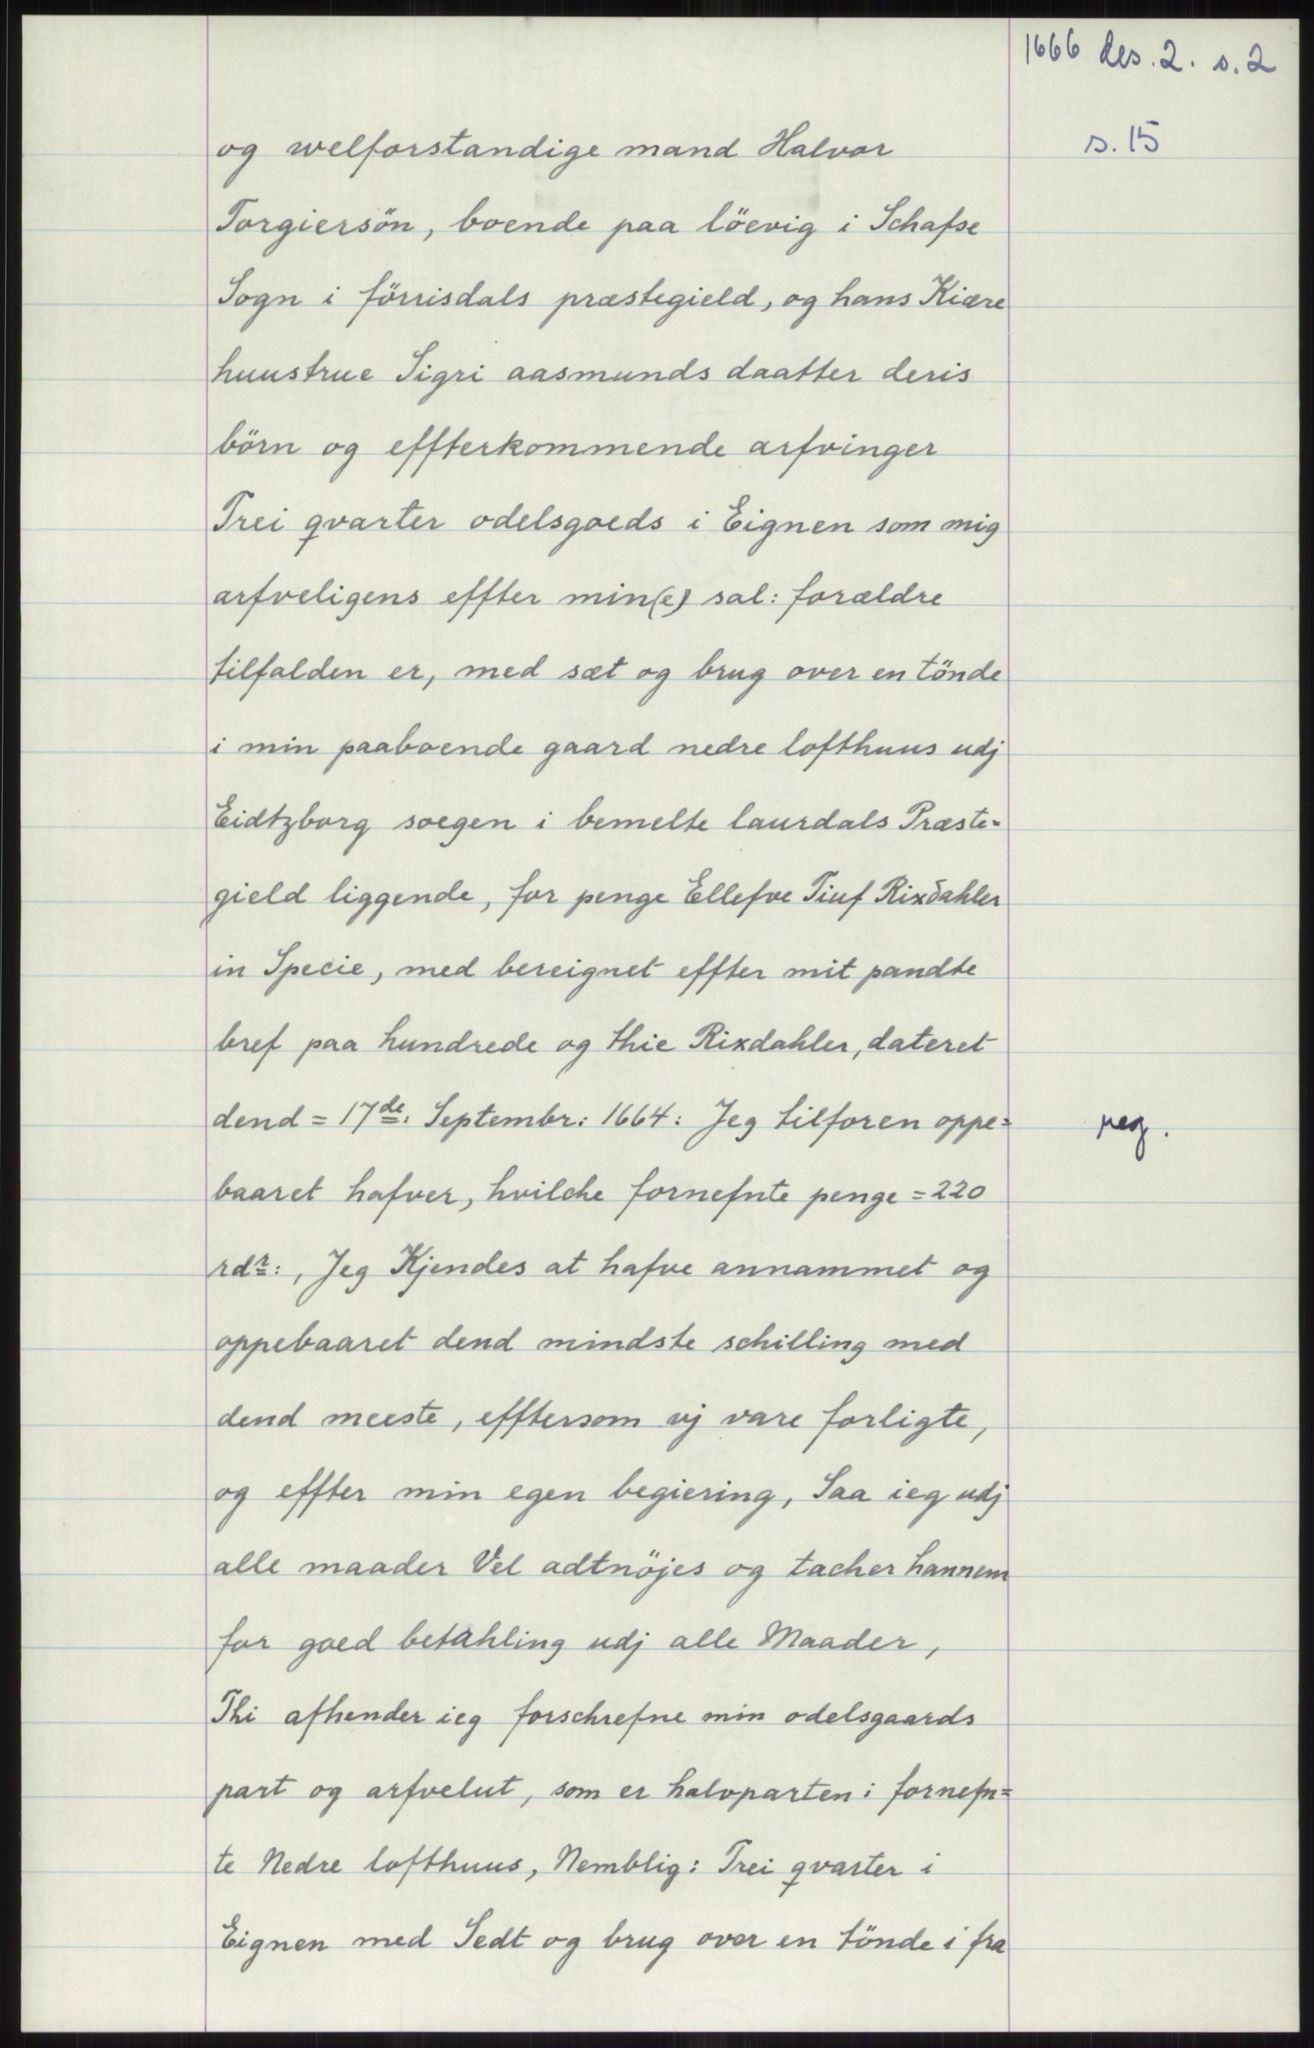 1666 des. 2. s. 2
s. 15
og welforstandige mand Halvor
Torgiersön, boende paa löevig i Schafse
Sogn i förrisdals præstegield, og hans Kiære
huustrue Sigri aasmunds daatter deris
börn og effterkommende arfvinger
Trei qvarter odelsgoeds i Eignen som mig
arfveligens effter min(e) sal: forældre
tilfalden er, med sæt og brug over en tönde
i min paaboende gaard nedre lofthuus udj
Eidtzborg soegen i bemelte laurdals Præste=
gield liggende, for penge Ellefve Tiuf Rixdahler
in Specie, med bereignet effter mit pandte
bref paa hundrede og thie Rixdahler, dateret
dend = 17de: Septembr: 1664: Jeg tilforen oppe=
reg.
baaret hafver, hvilche fornefnte penge = 220
rdr:, Jeg Kjendes at hafve annammet og
oppebaaret dend mindste schilling med
dend meeste, efftersom vj vare forligte,
og effter min egen begiering, Saa ieg udj
alle maader Vel adtnöjes og tacher hannem
for goed betahling udj alle Maader,
Thi afhender ieg forschrefne min odelsgaards
part og arfvelut, som er halvparten i fornefn=
te Nedre lofthuus, Nemblig: Trei qvarter i
Eignen med Sedt og brug over en tönde i fra